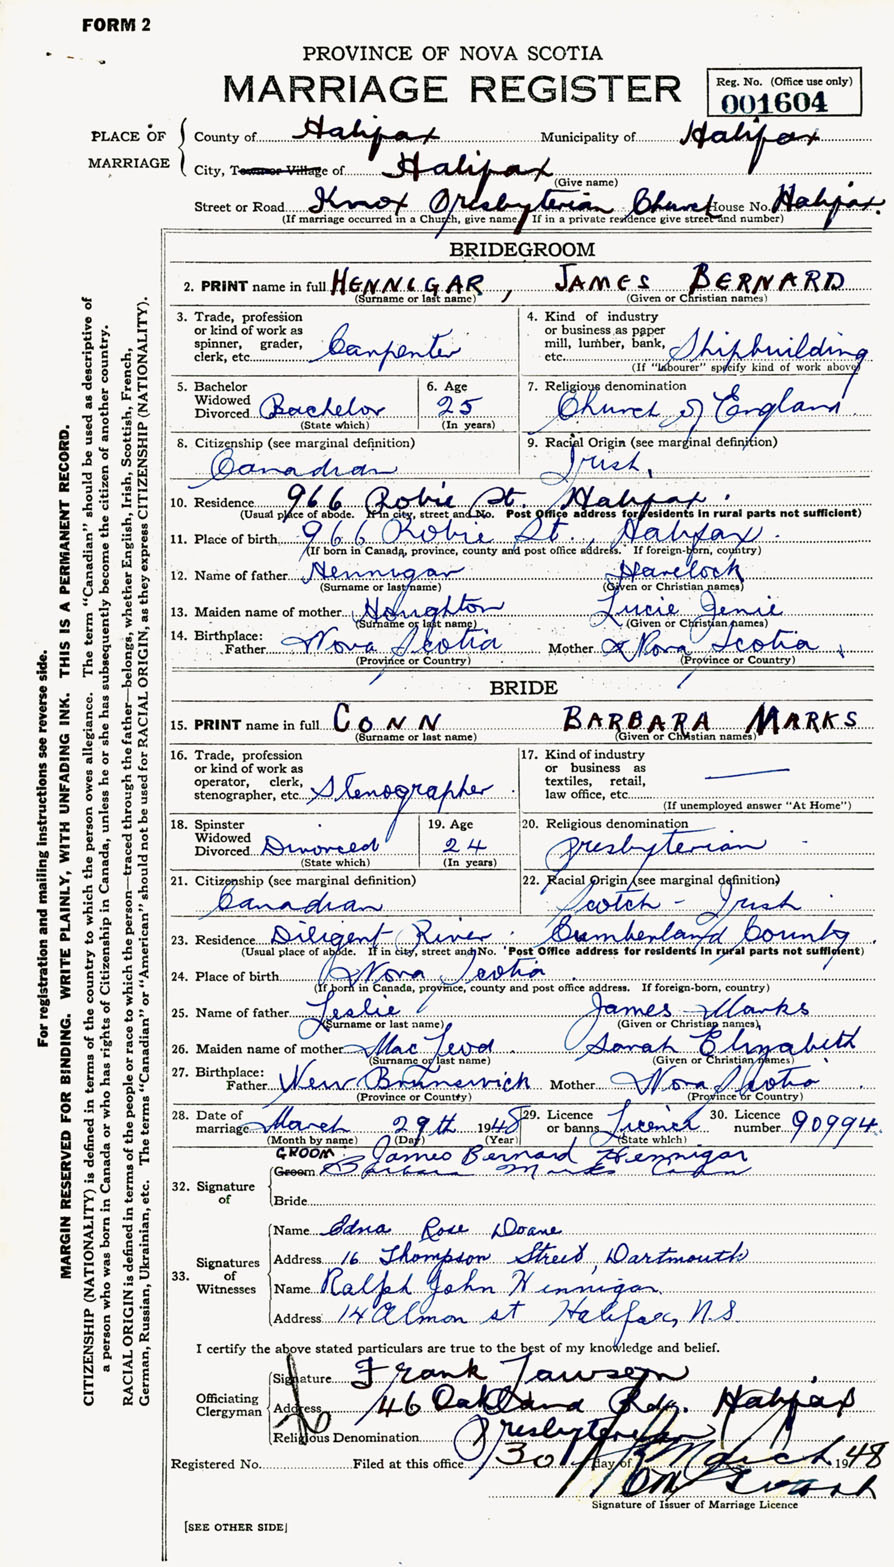 FORM 2
PROVINCE OF NOVA SCOTIA
MARRIAGE REGISTER
Reg. No. (Office use only)
001604
PLACE OF MARRIAGE
County of Halifax Municipality of Halifax
City, Town or Village of Halifax
(Give name)
Street or Road Knox Presbyterian Church House No. Halifax.
(If marriage occurred in a Church, give name. If in a private residence give street and number)
BRIDEGROOM
2. PRINT name in full HENNIGAR, JAMES BERNARD
(Surname or last name) (Given or Christian names)
3. Trade, profession or kind of work as spinner, grader, clerk, etc. Carpenter
4. Kind of industry or business as paper mill, lumber, bank, etc. Shipbuilding
(If "labourer" specify kind of work above)
5. Bachelor Widowed Divorced Bachelor
(State which)
6. Age 25
(In years)
7. Religious denomination
Church of England
8. Citizenship (see marginal definition)
Canadian
9. Racial Origin (see marginal definition)
Irish.
10. Residence 966 Robie St. Halifax.
(Usual place of abode. If in city, street and No. Post Office address for residents in rural parts not sufficient)
11. Place of birth 966 Robie St., Halifax.
(If born in Canada, province, county and post office address. If foreign-born, country)
12. Name of father Hennigar Havelock
(Surname or last name) (Given or Christian names)
13. Maiden name of mother Houghton Lucie Jenie
(Surname or last name) (Given or Christian names)
14. Birthplace:
Father Nova Scotia Mother Nova Scotia
(Province or Country) (Province or Country)
BRIDE
15. PRINT name in full CONN BARBARA MARKS
(Surname or last name) (Given or Christian names)
16. Trade, profession or kind of work as operator, clerk, stenographer, etc. Stenographer
17. Kind of industry or business as textiles, retail, law office, etc. —
(If unemployed answer "At Home")
18. Spinster Widowed Divorced Divorced
(State which)
19. Age 24
(In years)
20. Religious denomination
Presbyterian
21. Citizenship (see marginal definition)
Canadian
22. Racial Origin (see marginal definition)
Scotch - Irish
23. Residence Diligent River Cumberland County
(Usual place of abode. If in city, street and No. Post Office address for residents in rural parts not sufficient)
24. Place of birth Nova Scotia
(If born in Canada, province, county and post office address. If foreign-born, country)
25. Name of father Leslie James Marks
(Surname or last name) (Given or Christian names)
26. Maiden name of mother MacLeod Sarah Elizabeth
(Surname or last name) (Given or Christian names)
27. Birthplace:
Father New Brunswick Mother Nova Scotia
(Province or Country) (Province or Country)
28. Date of marriage March 29th 1948
(Month by name) (Day) (Year)
29. Licence or banns Licence
(State which)
30. Licence number 90994
32. Signature of
GROOM James Bernard Hennigar
Groom Barbara Marks Conn
Bride
33. Signatures of Witnesses
Name Edna Rose Doane
Address 16 Thompson Street, Dartmouth
Name Ralph John Hennigar
Address 14 Almon st Halifax, N.S.
I certify the above stated particulars are true to the best of my knowledge and belief.
Officiating Clergyman
Signature Frank Lawson
Address 46 Oakland Rd. Halifax
Religious Denomination Presbyterian
Registered No. Filed at this office 30 day of March 1948
Signature of Issuer of Marriage Licence
[SEE OTHER SIDE]
For registration and mailing instructions see reverse side.
MARGIN RESERVED FOR BINDING. WRITE PLAINLY, WITH UNFADING INK. THIS IS A PERMANENT RECORD.
CITIZENSHIP (NATIONALITY) is defined in terms of the country to which the person owes allegiance. The term "Canadian" should be used as descriptive of
a person who was born in Canada or who has rights of Citizenship in Canada, unless he or she has subsequently become the citizen of another country.
RACIAL ORIGIN is defined in terms of the people or race to which the person—traced through the father—belongs, whether English, Irish, Scottish, French,
German, Russian, Ukrainian, etc. The terms "Canadian" or "American" should not be used for RACIAL ORIGIN, as they express CITIZENSHIP (NATIONALITY).